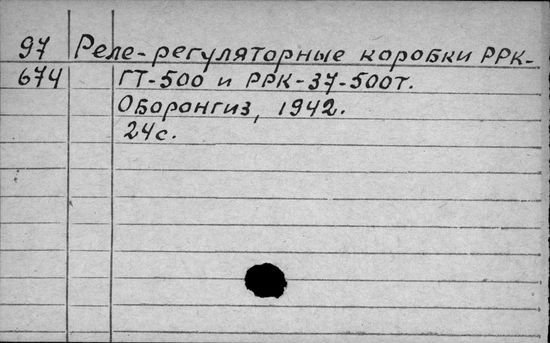 97 Реле-регуляторные коробки РРК-
674 ГТ-500 и РРК-37-500т.
Оборонгиз, 1942.
24с.